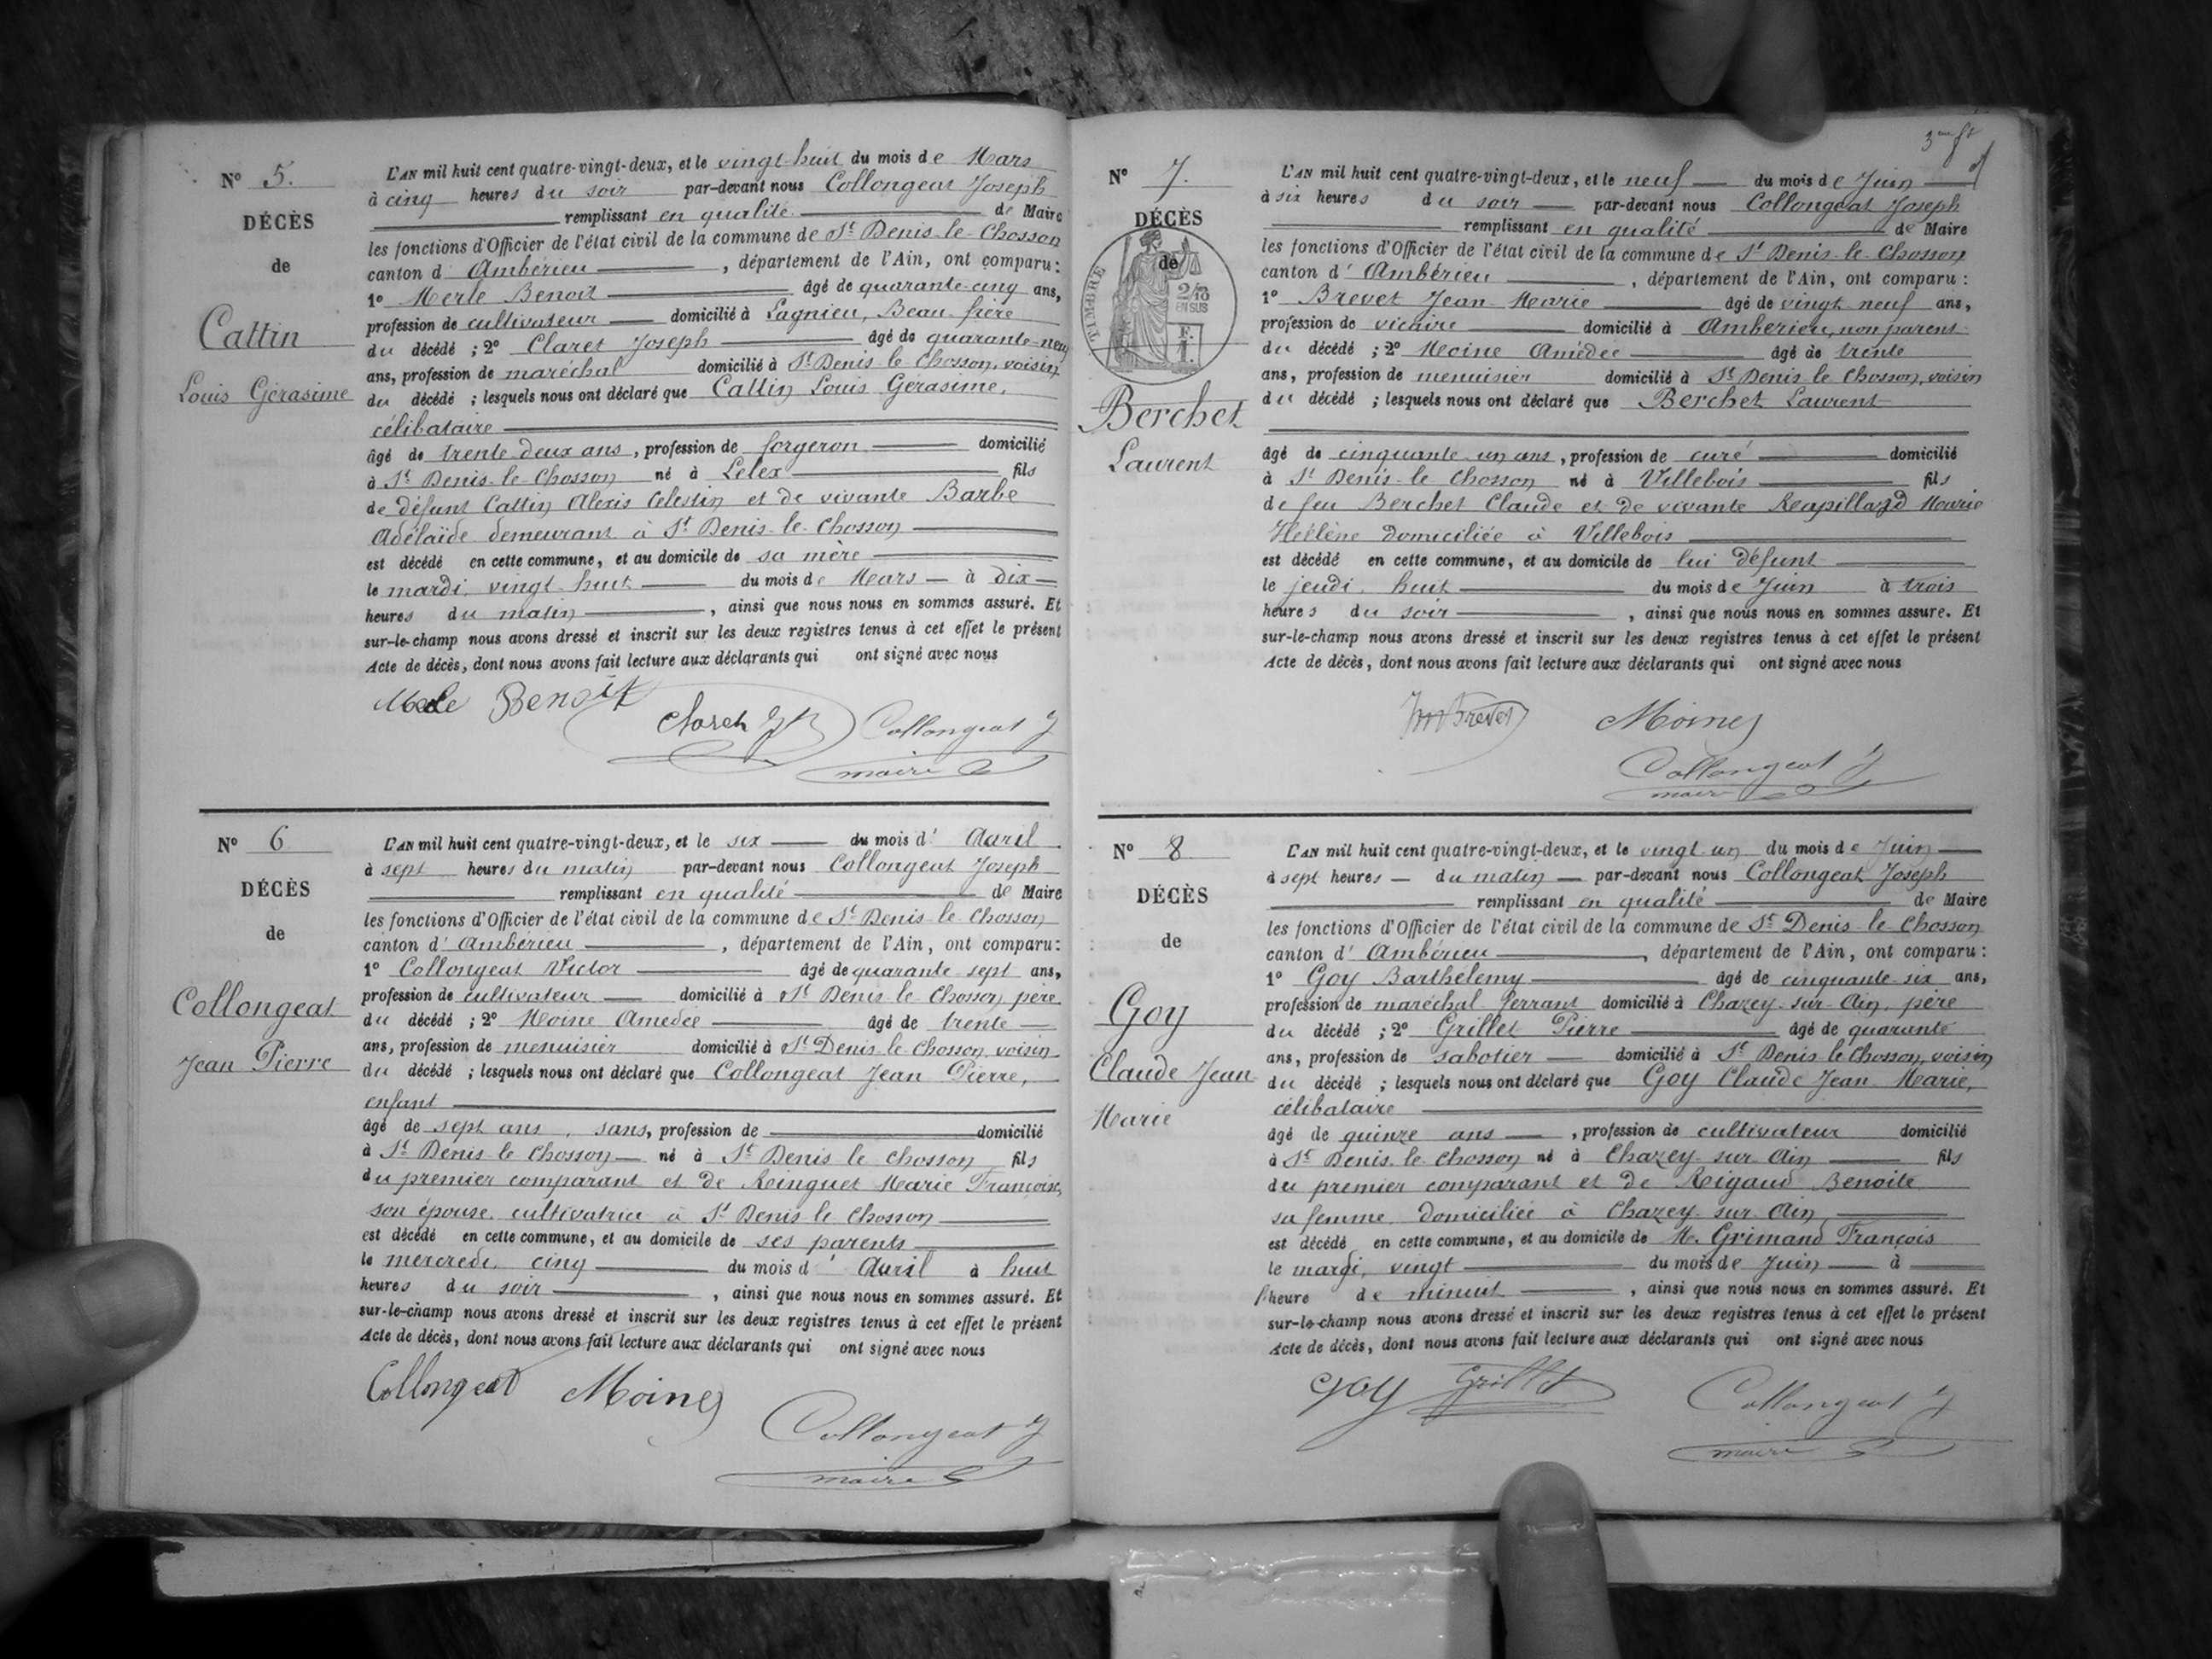 N° 5.
DÉCÈS
de
Cattin
Louis Gérasime
L'AN mil huit cent quatre-vingt-deux, et le vingt-huit du mois de Mars
à cinq heures du soir par-devant nous Collongeat Joseph
remplissant en qualité de Maire
les fonctions d'Officier de l'état civil de la commune de St Denis-le-Chosson
canton d'Ambérieu, département de l'Ain, ont comparu :
1° Merle Benoit âgé de quarante-cinq ans,
profession de cultivateur domicilié à Lagnieu, Beau frère
du décédé ; 2° Claret Joseph âgé de quarante-neuf
ans, profession de maréchal domicilié à St Denis-le-Chosson, voisin
du décédé ; lesquels nous ont déclaré que Cattin Louis Gérasime,
célibataire
âgé de trente-deux ans, profession de forgeron domicilié
à St Denis-le-Chosson né à Lélex fils
de défunt Cattin Alexis Célestin et de vivante Barbe
Adélaïde demeurant à St Denis-le-Chosson
est décédé en cette commune, et au domicile de sa mère
le mardi, vingt-huit du mois de Mars à dix
heures du matin, ainsi que nous nous en sommes assuré. Et
sur-le-champ nous avons dressé et inscrit sur les deux registres tenus à cet effet le présent
Acte de décès, dont nous avons fait lecture aux déclarants qui ont signé avec nous
Merle Benoit
Claret Collongeat J
maire
N° 6
DÉCÈS
de
Collongeat
Jean Pierre
L'AN mil huit cent quatre-vingt-deux, et le six du mois d'Avril
à sept heures du matin par-devant nous Collongeat Joseph
remplissant en qualité de Maire
les fonctions d'Officier de l'état civil de la commune de St Denis-le-Chosson
canton d'Ambérieu, département de l'Ain, ont comparu :
1° Collongeat Victor âgé de quarante-sept ans,
profession de cultivateur domicilié à St Denis-le-Chosson père
du décédé ; 2° Moine Amédée âgé de trente
ans, profession de menuisier domicilié à St Denis-le-Chosson voisin
du décédé ; lesquels nous ont déclaré que Collongeat Jean Pierre,
enfant
âgé de sept ans, sans, profession de domicilié
à St Denis le Chosson né à St Denis le Chosson fils
du premier comparant et de Reinguet Marie Françoise,
son épouse, cultivatrice à St Denis-le-Chosson
est décédé en cette commune, et au domicile de ses parents
le mercredi, cinq du mois d'Avril à huit
heures du soir, ainsi que nous nous en sommes assuré. Et
sur-le-champ nous avons dressé et inscrit sur les deux registres tenus à cet effet le présent
Acte de décès, dont nous avons fait lecture aux déclarants qui ont signé avec nous
Collongeat Moine
Collongeat J
maire
3me ft
N° 7.
DÉCÈS
de
TIMBRE
2/10
EN SUS
F.
1.
Berchet
Laurent
L'AN mil huit cent quatre-vingt-deux, et le neuf du mois de Juin
à six heures du soir par-devant nous Collongeat Joseph
remplissant en qualité de Maire
les fonctions d'Officier de l'état civil de la commune de St Denis-le-Chosson
canton d'Ambérieu, département de l'Ain, ont comparu :
1° Brevet Jean-Marie âgé de vingt-neuf ans,
profession de vicaire domicilié à Ambérieu, non parent
du décédé ; 2° Moine Amédée âgé de trente
ans, profession de menuisier domicilié à St Denis-le-Chosson, voisin
du décédé ; lesquels nous ont déclaré que Berchet Laurent
âgé de cinquante-un ans, profession de curé domicilié
à St Denis-le-Chosson né à Villebois fils
de feu Berchet Claude et de vivante Reapillard Marie
Hélène domiciliée à Villebois
est décédé en cette commune, et au domicile de lui défunt
le jeudi, huit du mois de Juin à trois
heures du soir, ainsi que nous nous en sommes assuré. Et
sur-le-champ nous avons dressé et inscrit sur les deux registres tenus à cet effet le présent
Acte de décès, dont nous avons fait lecture aux déclarants qui ont signé avec nous
Jm Brevet Moine
Collongeat J
maire
N° 8
DÉCÈS
de
Goy
Claude Jean
Marie
L'AN mil huit cent quatre-vingt-deux, et le vingt-un du mois de Juin
à sept heures du matin par-devant nous Collongeat Joseph
remplissant en qualité de Maire
les fonctions d'Officier de l'état civil de la commune de St Denis-le-Chosson
canton d'Ambérieu, département de l'Ain, ont comparu :
1° Goy Barthélemy âgé de cinquante-six ans,
profession de maréchal-ferrant domicilié à Chazey-sur-Ain, père
du décédé ; 2° Grillet Pierre âgé de quarante
ans, profession de sabotier domicilié à St Denis-le-Chosson, voisin
du décédé ; lesquels nous ont déclaré que Goy Claude Jean-Marie,
célibataire
âgé de quinze ans, profession de cultivateur domicilié
à St Denis-le-Chosson né à Chazey-sur-Ain fils
du premier comparant et de Rigaud Benoite
sa femme, domiciliée à Chazey-sur-Ain
est décédé en cette commune, et au domicile de M. Grimand François
le mardi, vingt du mois de Juin à
l'heure de minuit, ainsi que nous nous en sommes assuré. Et
sur-le-champ nous avons dressé et inscrit sur les deux registres tenus à cet effet le présent
Acte de décès, dont nous avons fait lecture aux déclarants qui ont signé avec nous
Goy Grillet
Collongeat J
maire